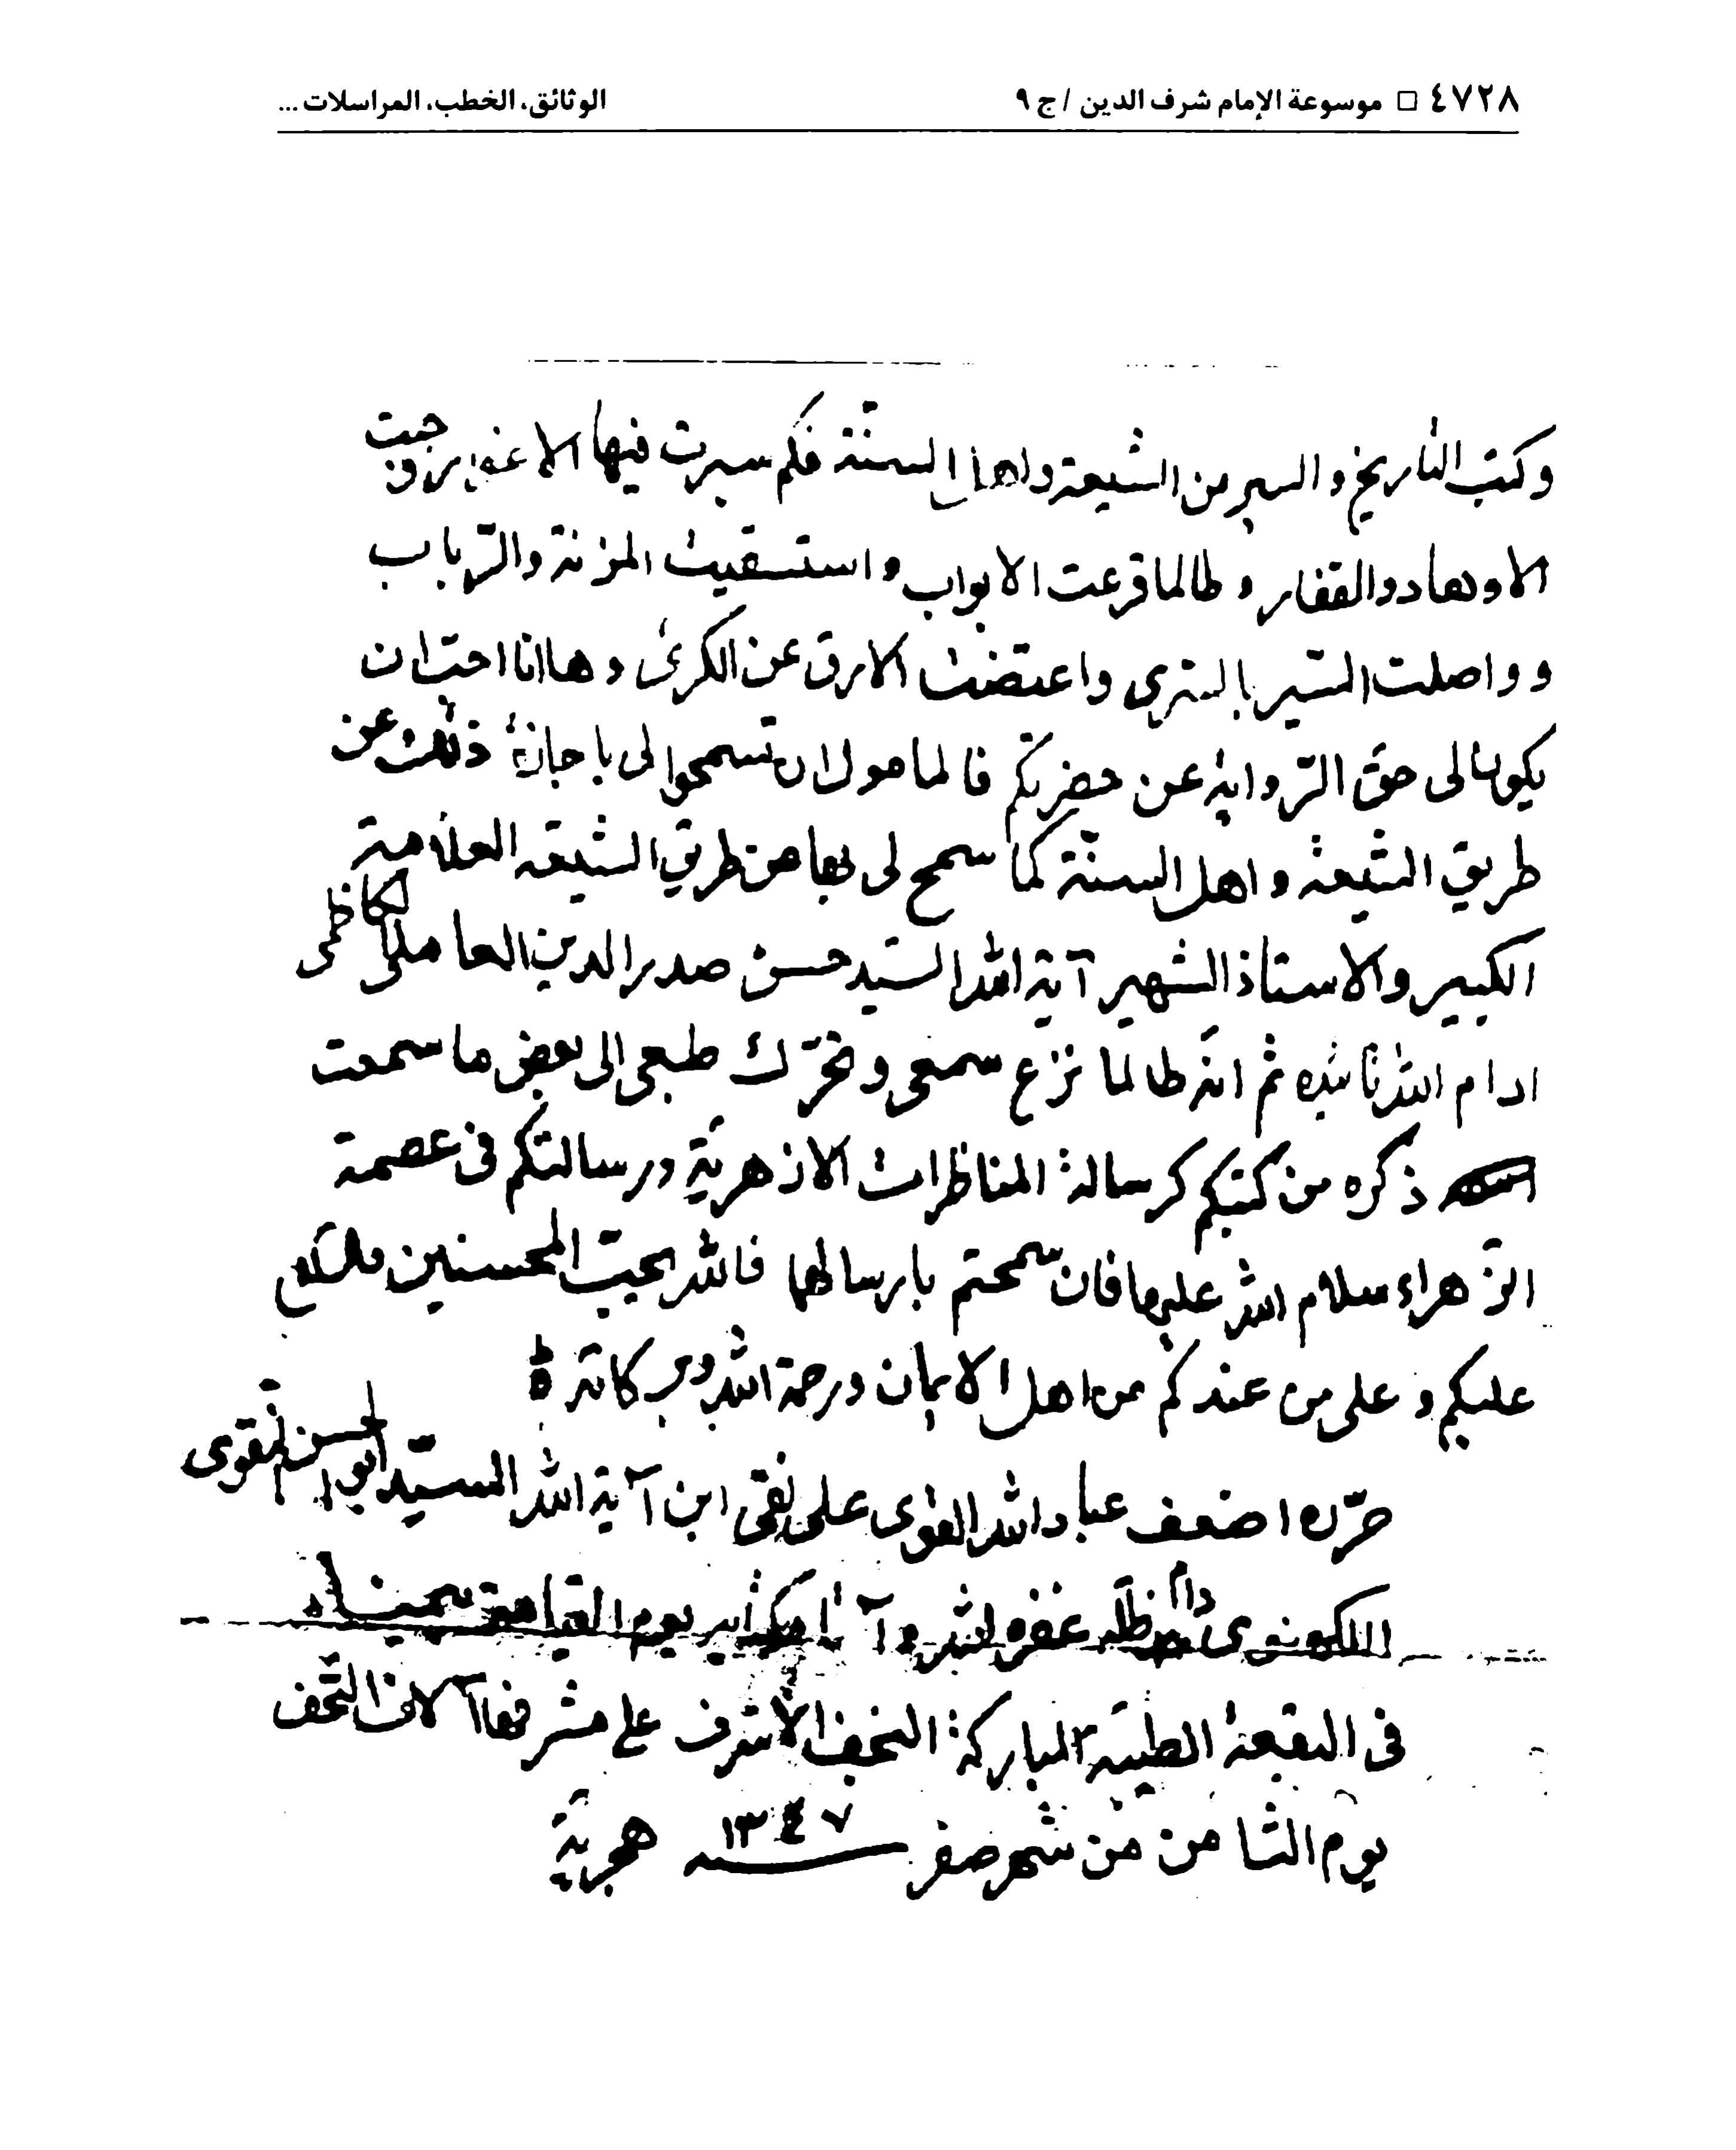 ٤٧٢٨ □ موسوعة الإمام شرف الدين / ج ٩
الوثائق، الخطب، المراسلات ...
وكتب التاريخ والسير من الشيعة واهل السنة فكم سبرت فيها الاغوار وجبت
الاوهاد والقفار وطالما قرعت الابواب واستسقيت المزنة والرباب
وواصلت السير بالسرى واعتضت الارق عن الكرى وها انا احب ان
يكون لى حق الرواية عن حضرتكم فالمامول ان تسمحوا لى باجازة ذلك عن
طريق الشيعة واهل السنة كما سمح لى بها من طريق الشيعة العلامة
الكبير والاستاذ الشهير آية الله السيد حسن صدر الدين العاملى الكاظمى
ادام الله تائيده ثم انه طالما نزع سمعى وتحرك طبعى الى بعض ما سمعت
ذكره من كتبكم كرسالة المناظرات الازهرية ورسالتكم فى عصمة
الزهراء سلام الله عليها فان سمحتم بارسالها فالله يحب المحسنين والسلام
عليكم وعلى من عندكم من اهل الايمان ورحمة الله وبركاته
حرره اضعف عباد الله القوى على نقى ابن آية الله السيد ابو الحسن النقوى
اللكهنوى دام ظله غفره الله و يوم القيامة بيمناه
فى البقعة الطيبة المباركة النجف الاشرف على مشرفها آلاف التحف
يوم الثامن من شهر صفر سنة ١٣٤٧ هجرية